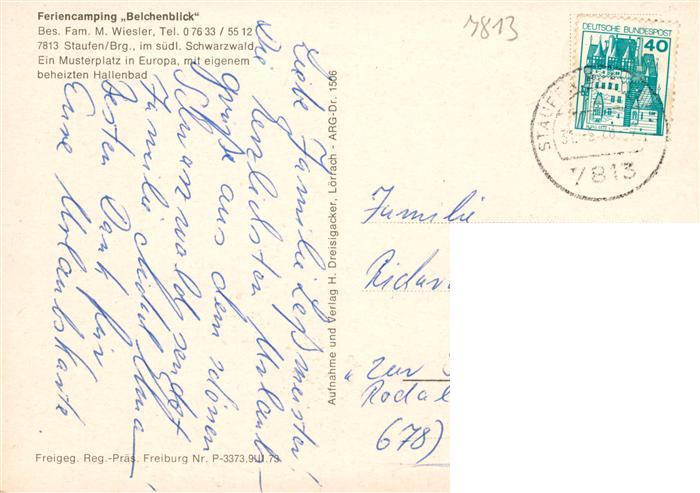 Feriencamping „Belchenblick"
Bes. Fam. M. Wiesler, Tel. 0 76 33 / 55 12
7813 Staufen/Brg., im südl. Schwarzwald
Ein Musterplatz in Europa, mit eigenem
beheizten Hallenbad
7813
DEUTSCHE BUNDESPOST
40
STAUF
7813
Liebe Familie
Die herzlichsten Urlaub-
grüße aus dem schönen
Schwarzwald sendet
Familie
Besten Dank für
Eure Urlaubskarte.
Aufnahme und Verlag H. Dreisigacker, Lörrach - ARG-Dr. 1506
Familie
Richar
"zur
Rodal
678)
Freigeg. Reg.-Präs. Freiburg Nr. P-3373,9.III.73